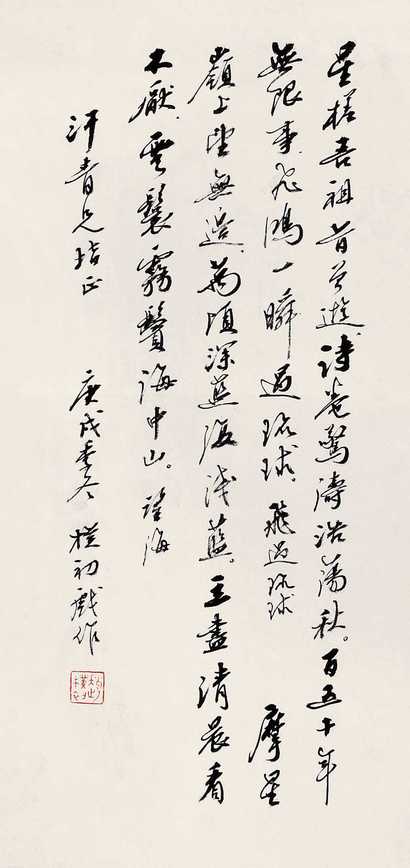 星槎吾祖昔曾遊。詩卷驚濤浩蕩秋。百五十年
無限事，飛鴻一瞬過琉球。飛過琉球 摩星
嶺上望無邊，萬頃深藍復淺藍。立盡清晨看
不厭，雲鬟霧鬢海中山。望海
汗青兄指正 庚戌季冬 樸初戲作